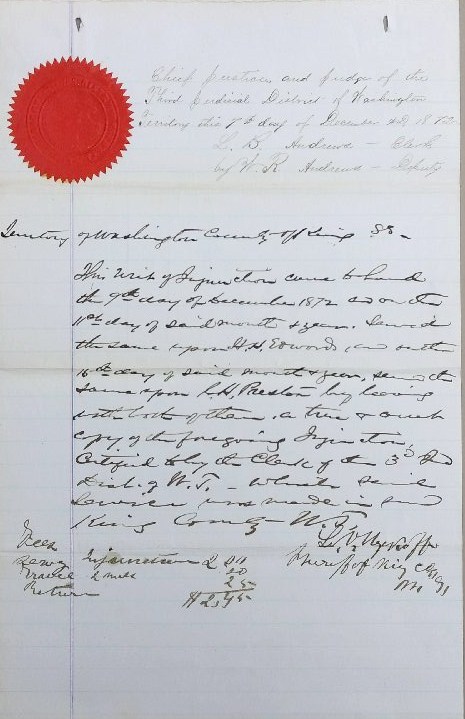 Chief Justice and Judge of the
Third Judicial District of Washington
Territory this 9th day of December AD 1872
L. B. Andrews – Clerk
by W. R. Andrews – Deputy
Territory of Washington County of King SS –
This Writ of Injunction came to hand
the 9th day of December 1872 and on the
11th day of said month & year. Served
the same upon H. H. Edwards, and on the
16th day of said month & year, served the
same upon L. H. Preston by leaving
with both of them, a true & correct
copy of the foregoing Injunction,
Certified to by the Clerk of the 3rd
Dist. of W. T. – said
Service was made in said
King County W. T.
L. V.
Sheriff of King Co
Fees
Serving Injunction 2 00
Travel 2 miles 20
Return 25
$2.45